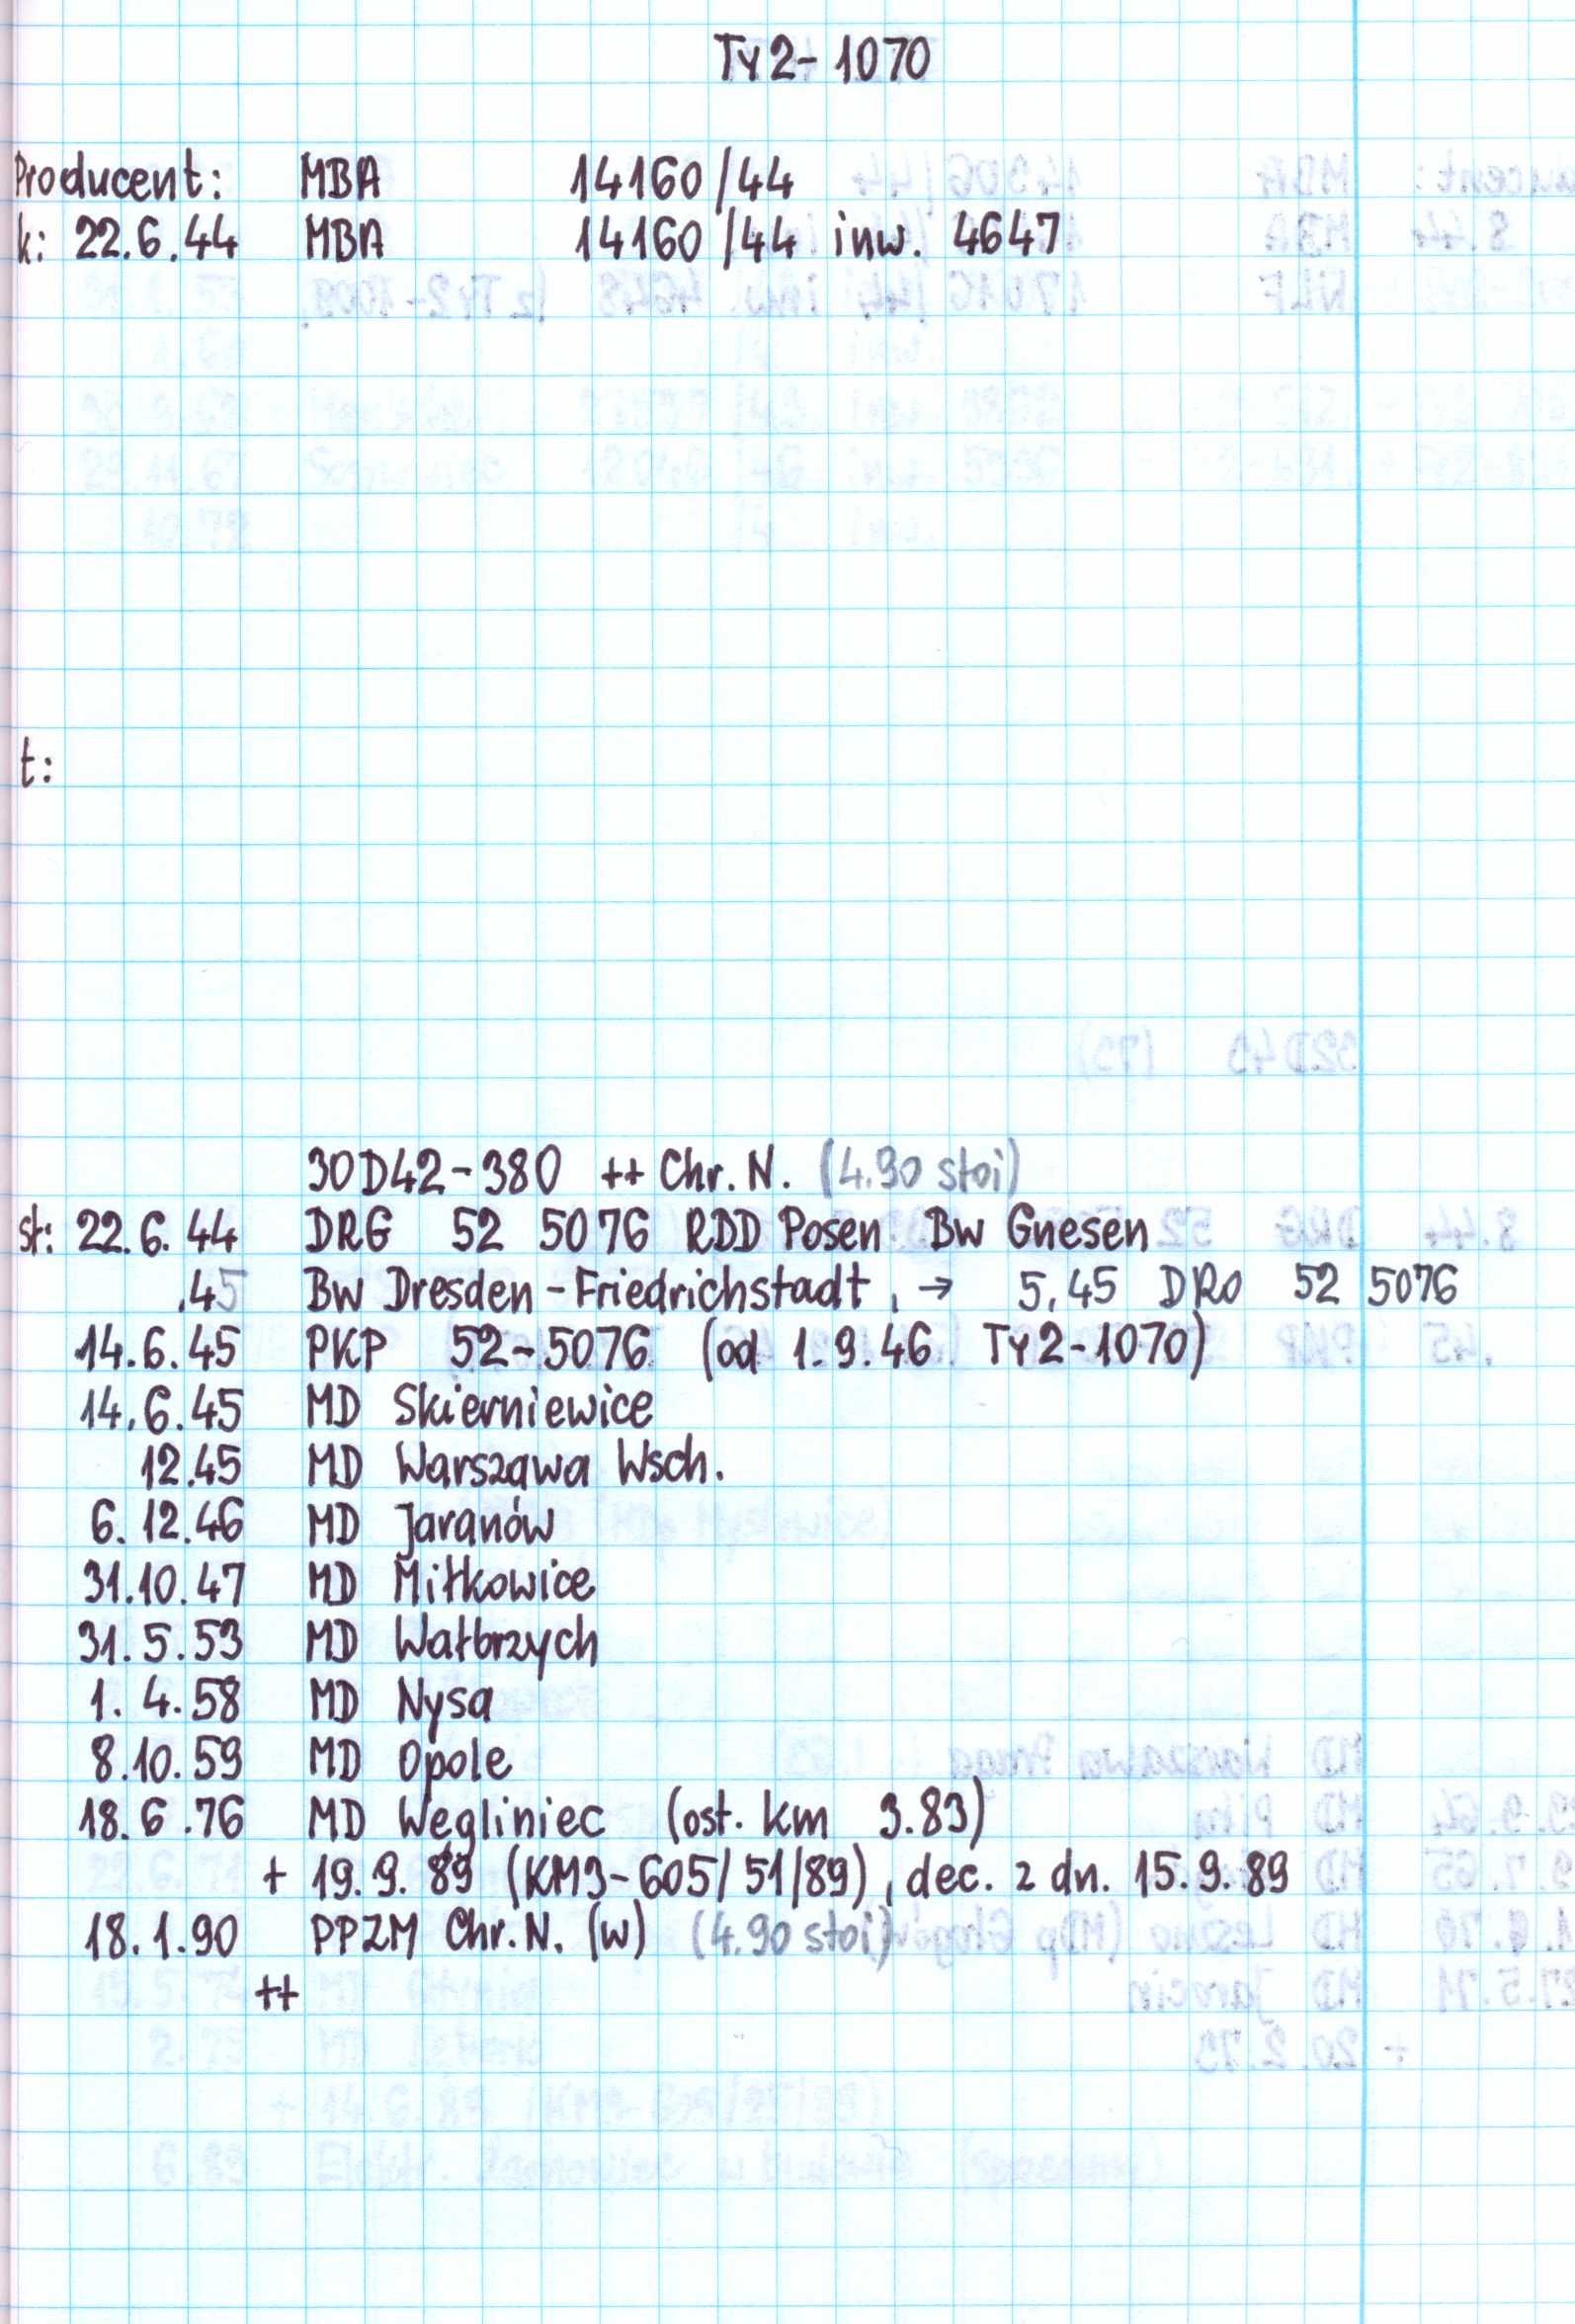 Ty2-1070
Producent: MBA 14160/44
k: 22.6.44 MBA 14160/44 inw. 4647
t:
30D42-380 ++ Chr. N. (4.90 stoi)
st: 22.6.44 DRG 52 5076 RDD Posen Bw Gnesen
.45 Bw Dresden-Friedrichstadt, → 5.45 DRo 52 5076
14.6.45 PKP 52-5076 (od 1.9.46 Ty2-1070)
14.6.45 MD Skierniewice
12.45 MD Warszawa Wsch.
6.12.46 MD Jaranów
31.10.47 MD Miłkowice
31.5.53 MD Wałbrzych
1.4.58 MD Nysa
8.10.59 MD Opole
18.6.76 MD Węgliniec (ost. km 3.83)
+ 19.9.89 (KM3-605/51/89), dec. z dn. 15.9.89
18.1.90 PPZM Chr. N. (w) (4.90 stoi)
++